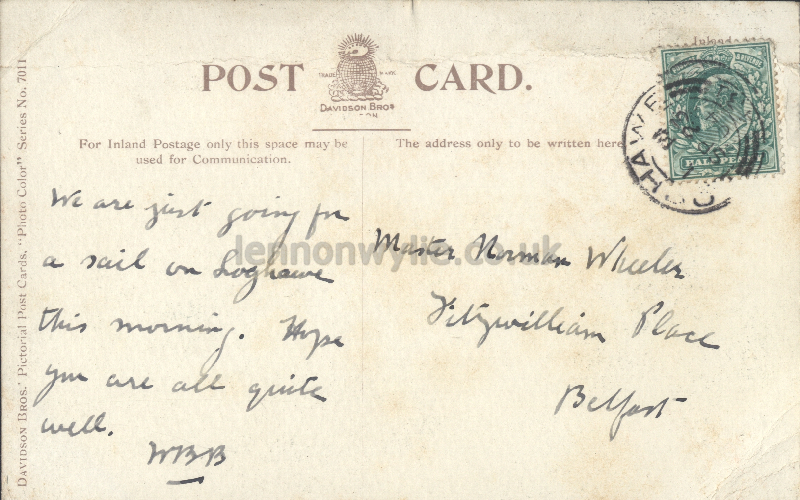 POST CARD.
TRADE MARK
DAVIDSON BROS
For Inland Postage only this space may be
used for Communication.
The address only to be written here
We are just going for
a sail on Loghawe
this morning. Hope
you are all quite
well.
WBB
Master Norman Wheeler
Fitzwilliam Place
Belfast
HALFPENNY
DAVIDSON BROS.' Pictorial Post Cards. "Photo Color" Series No. 7011
lennonwylie.co.uk